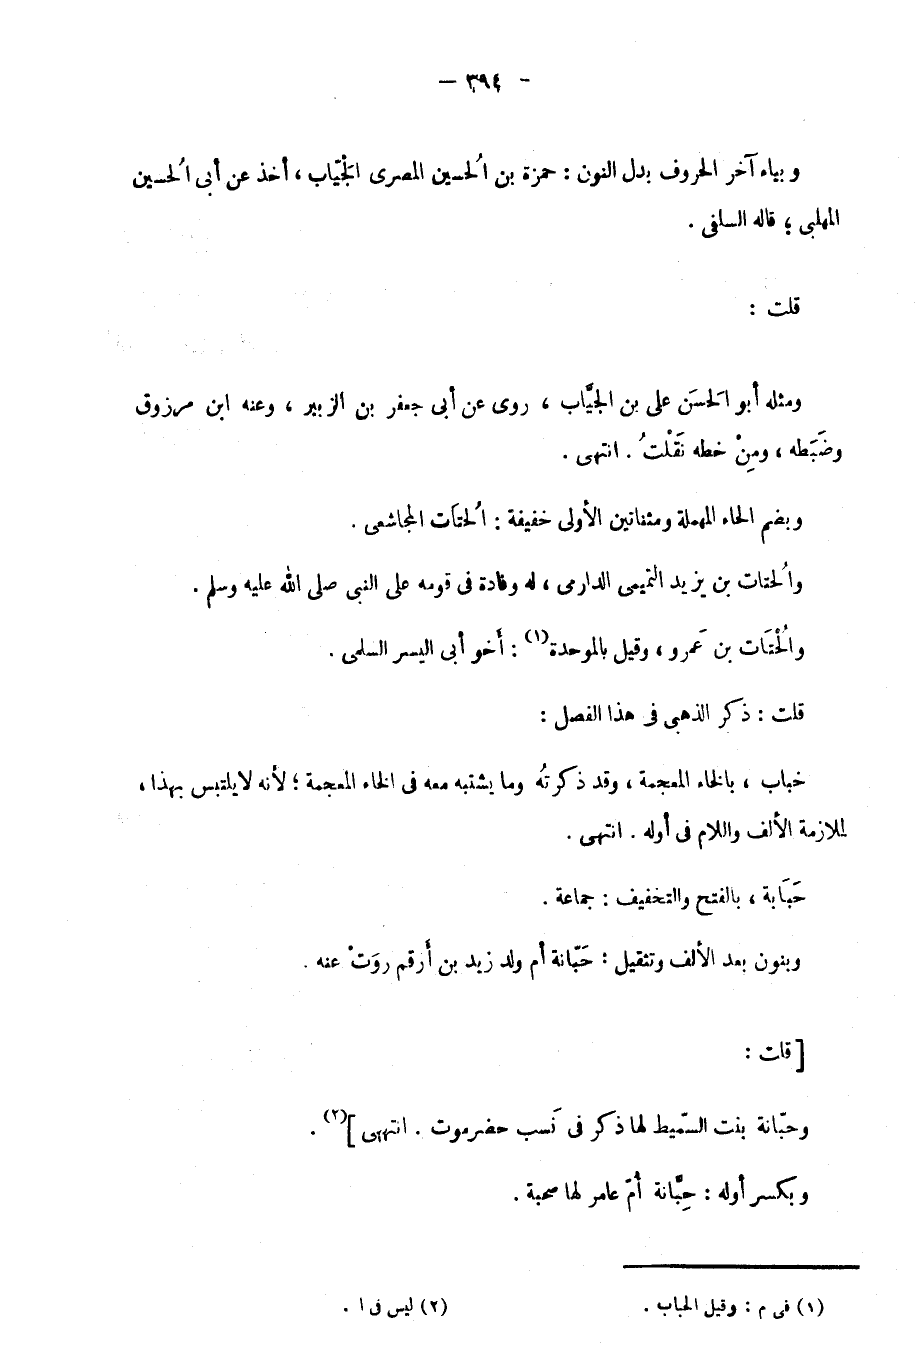 - ٣٩٤ —
وبياء آخر الحروف بدل النون : حمزة بن الُحسين المصرى الْجَيّاب ، أخذ عن أبى الُحسين
المهلبى ؛ قاله السلفى .
قلت :
ومثله أبو الَحسَن على بن الجيَّاب ، روى عن أبى جعفر بن الزبير ، وعنه ابن مرزوق
وضَبَطه ، ومِنْ خطه نَقَلْتُ . انتهى .
وبضم الحاء المهملة ومثناتين الأولى خفيفة : الُحتَات المجاشعى .
والُحتات بن يزيد التميمى الدارمى ، له وفادة فى قومه على النبى صلى الله عليه وسلم .
والُحْتَات بن عَمرو ، وقيل بالموحدة(١) : أَخو أبى اليسر السلمى .
قلت : ذكر الذهبى فى هذا الفصل :
خباب ، بالخاء المعجمة ، وقد ذكرتهُ وما يشتبه معه فى الخاء المعجمة ؛ لأنه لا يلتبس بهذا ،
لملازمة الألف واللام فى أوله . انتهى .
حَبَابة ، بالفتح والتخفيف : جماعة .
وبنون بعد الألف وتثقيل : حَبّانة أم ولد زيد بن أَرقم روَتْ عنه .
[ قلت :
وحبّانة بنت السّميط لها ذكر فى نَسب حضرموت . انتهى ](٢) .
وبكسر أوله : حِبَّانة أُمّ عامر لها صحبة .
(١) فى م : وقيل الحباب .          (٢) ليس فى ا .